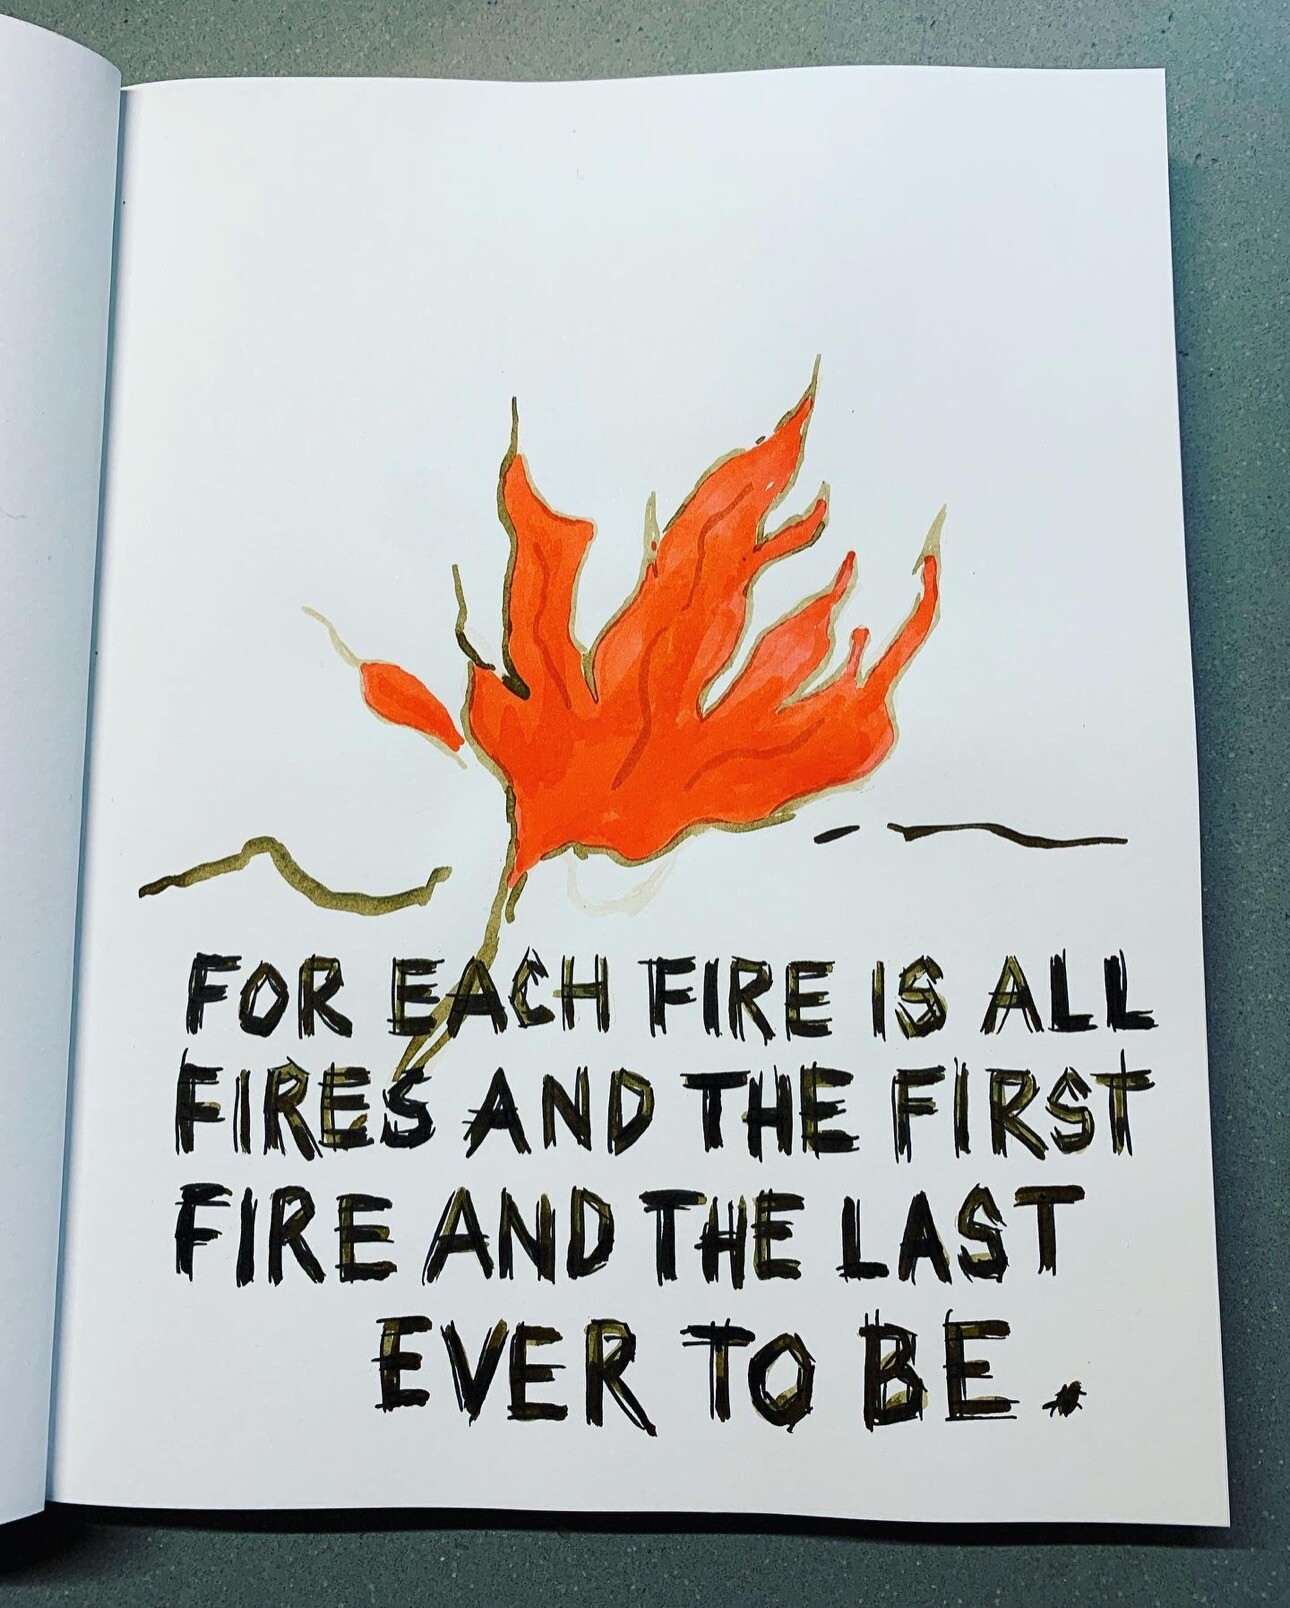 FOR EACH FIRE IS ALL
FIRES AND THE FIRST
FIRE AND THE LAST
EVER TO BE.